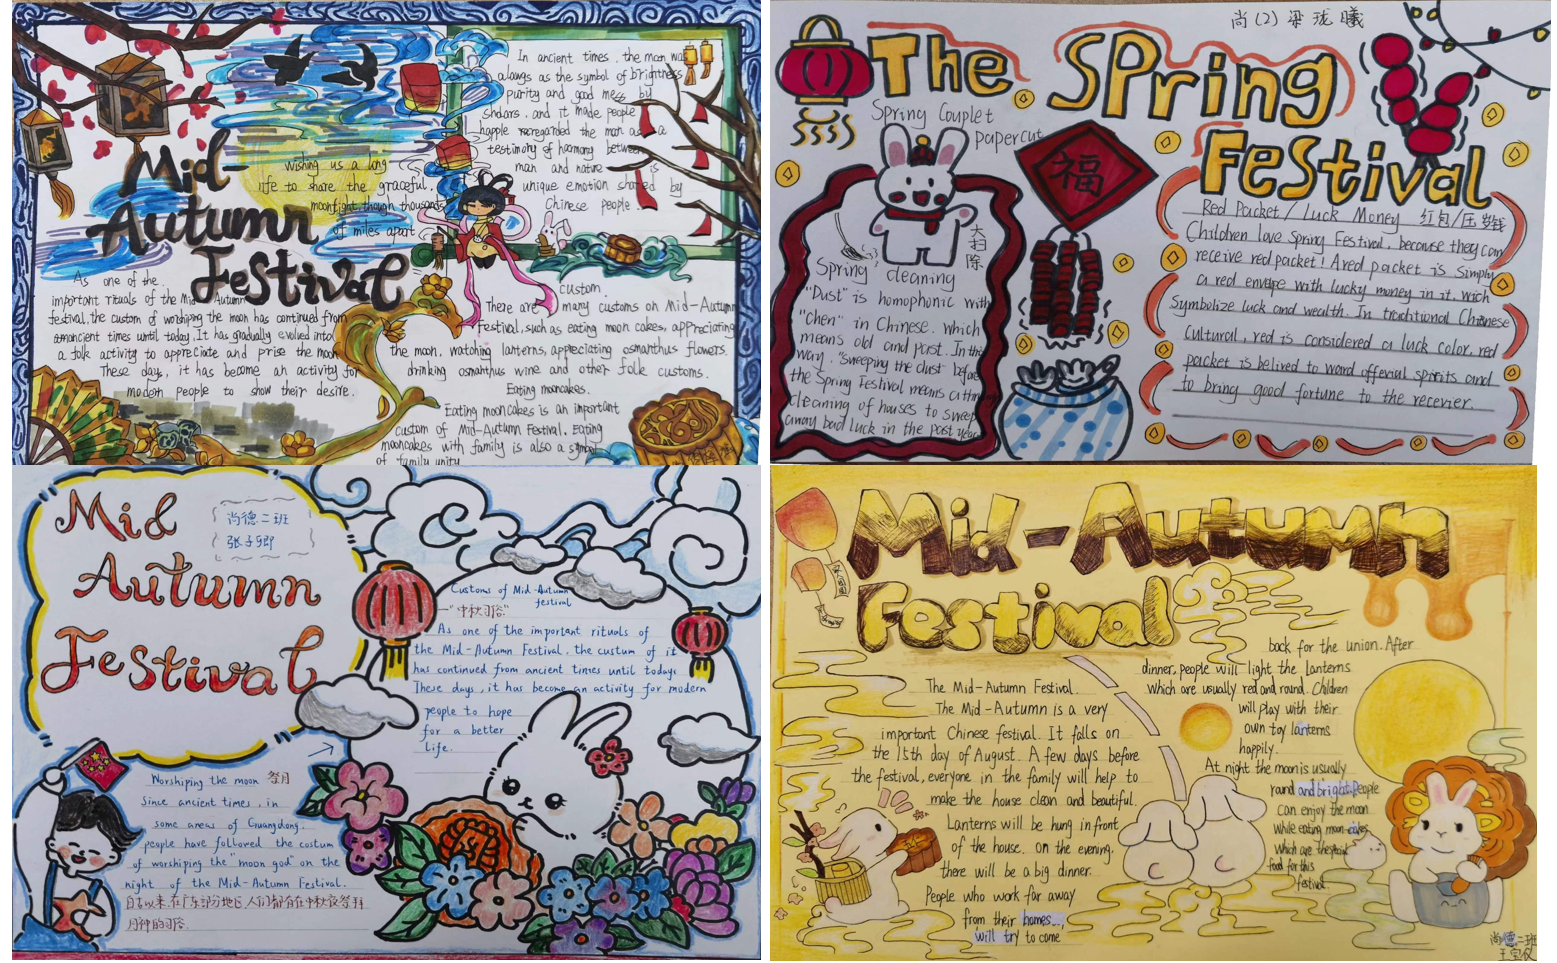 Mid-
Autumn
Festival
Wishing us a long
life to share the graceful
moonlight, though thousands
of miles apart
In ancient times, the moon was
alwags as the symbol of brightness
purity and good mess by
shdars, and it made people
happle reregarded the mon as a
testimony of haomony between
man and nature is
unique emotion shated by
Chinese people.
As one of the
important rituals of the Mid-Autumn
festival, the custom of worshiping the moon has continued from
anancient times until today. It has gradually evolved into
a folk activity to appreciate and prise the moon
These day, it has become an activity for
modern people to show their desire.
custom
There are many customs on Mid-Autumn
Festival, such as eating moon cakes, appreciating
the moon, watching lanterns, appreciating osmanthus flowers.
drinking osmanthus wine and other folk customs.
Eating mooncakes.
Eating mooncakes is an important
custom of Mid-Autumn Festival. Eating
mooncakes with family is also a symbol
of family unity
尚(2)梁珑曦
The Spring
Festival
Spring Couplet
papercut
福
大
扫
除
Spring cleaning
"Dust" is homophonic with
"chen" in Chinese. which
means old and past. In this
way. "sweeping the dust" before
the Spring Festival means a thro
cleaning of houses to sweep
away bad luck in the past year
Red Packet / Luck Money 红包/压岁钱
Children love Spring Festival, because they can
receive red packet! Ared packet is simply
a red envepe with lucky money in it, wich
symbolize luck and wealth. In traditional Chinese
cultural, red is considered a luck color, red
packet is belived to ward offevial spirits and
to bring good fortune to the recevier.
Mid
Autumn
Festival
尚德二班
张子卿
Customs of Mid-Autumn
festival
—"中秋习俗"
As one of the important rituals of
the Mid-Autumn Festival, the custum of it
has continued from ancient times until today.
These days, it has become an activity for modern
people to hope
for a better
life.
Worshiping the moon 祭月
Since ancient times, in
some areas of Guangdong.
people have followed the costum
of worshiping the "moon god" on the
night of the Mid-Autumn Festival.
自古以来,在广东部分地区人们都有在中秋夜祭拜
月神的习俗.
Mid-Autumn
Festival
The Mid-Autumn Festival.
The Mid-Autumn is a very
important Chinese festival. It falls on
the 15th day of August. A few days before
the festival, everyone in the family will help to
make the house clean and beautiful.
Lanterns will be hung in front
of the house. On the evening.
there will be a big dinner.
People who work far away
from their homes...,
will try to come
back for the union. After
dinner, people will light the lanterns
which are usually red and round. Children
will play with their
own toy lanterns
happily.
At night the moon is usually
round and bright. People
can enjoy the moon
while eating moon-cakes
which are the special
food for this
festival.
尚德二班